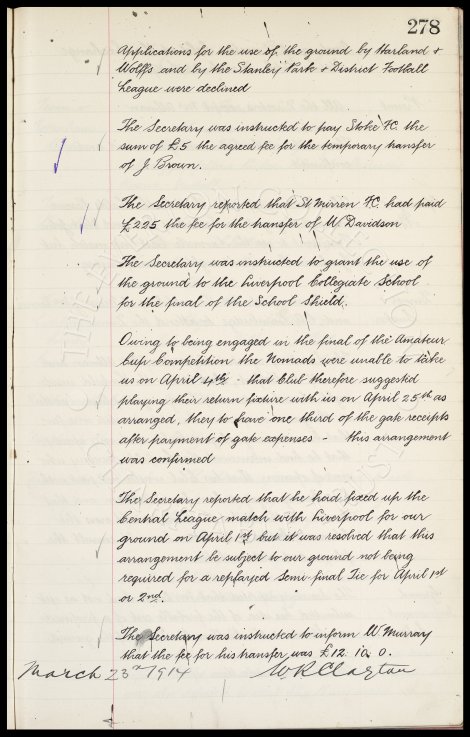 278
Applications for the use of the ground by Harland &
Wolffs and by the Stanley Park & District Football
League were declined
The Secretary was instructed to pay Stoke F.C. the
sum of £5 the agreed fee for the temporary transfer
of J. Brown.
The Secretary reported that St Mirren F.C. had paid
£225 the fee for the transfer of W. Davidson
The Secretary was instructed to grant the use of
the ground to the Liverpool Collegiate School
for the final of the School Shield.
Owing to being engaged in the final of the Amateur
Cup Competition the Nomads were unable to take
us on April 4th - that Club therefore suggested
playing their return fixture with us on April 25th as
arranged, they to have one third of the gate receipts
after payment of gate expenses - this arrangement
was confirmed
The Secretary reported that he had fixed up the
Central League match with Liverpool for our
ground on April 1st but it was resolved that this
arrangement be subject to our ground not being
required for a replayed Semi-final Tie for April 1st
or 2nd.
The Secretary was instructed to inform W Murray
that the fee for his transfer was £12. 10. 0.
March 23rd 1914 W R Clayton